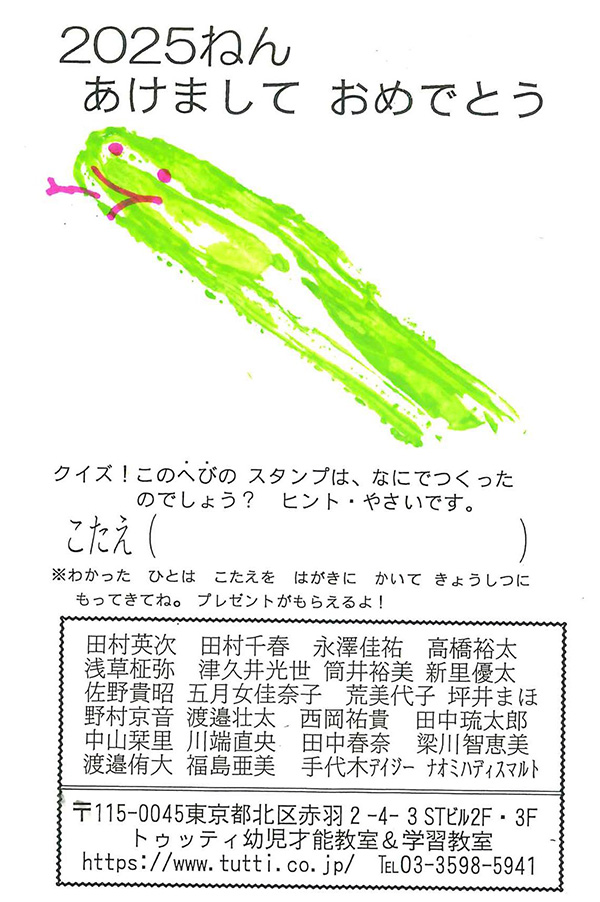 2025ねん
あけまして おめでとう
クイズ！このへびの スタンプは、なにでつくった
のでしょう？ ヒント・やさいです。
こたえ（ ）
※わかった ひとは こたえを はがきに かいて きょうしつに
もってきてね。 プレゼントがもらえるよ！
田村英次 田村千春 永澤佳祐 高橋裕太
浅草柾弥 津久井光世 筒井裕美 新里優太
佐野貴昭 五月女佳奈子 荒美代子 坪井まほ
野村京音 渡邉壮太 西岡祐貴 田中琉太郎
中山栞里 川端直央 田中春奈 梁川智恵美
渡邉侑大 福島亜美 手代木デイジー ナオミハディスマルト
〒115-0045東京都北区赤羽2-4-3 STビル2F・3F
トゥッティ幼児才能教室＆学習教室
https://www.tutti.co.jp/ TEL03-3598-5941